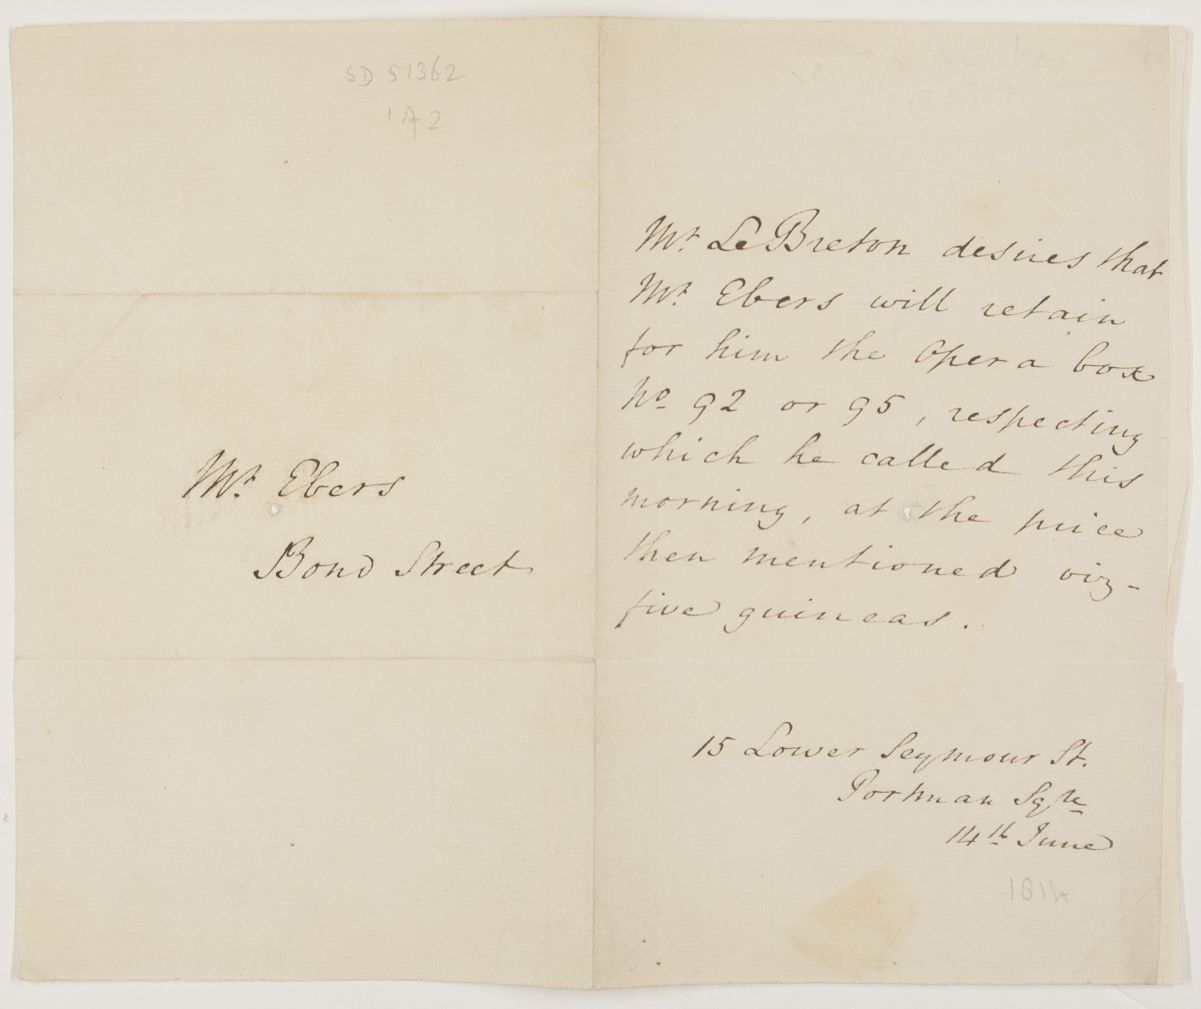 SD 51362
1A2
Mr. Ebers
Bond Street
Mr. Le Breton desires that
Mr. Ebers will retain
for him the Opera box
No. 92 or 95, respecting
which he called this
morning, at the price
then mentioned viz-
five guineas.
15 Lower Seymour St.
Portman Sqre
14th June
1814